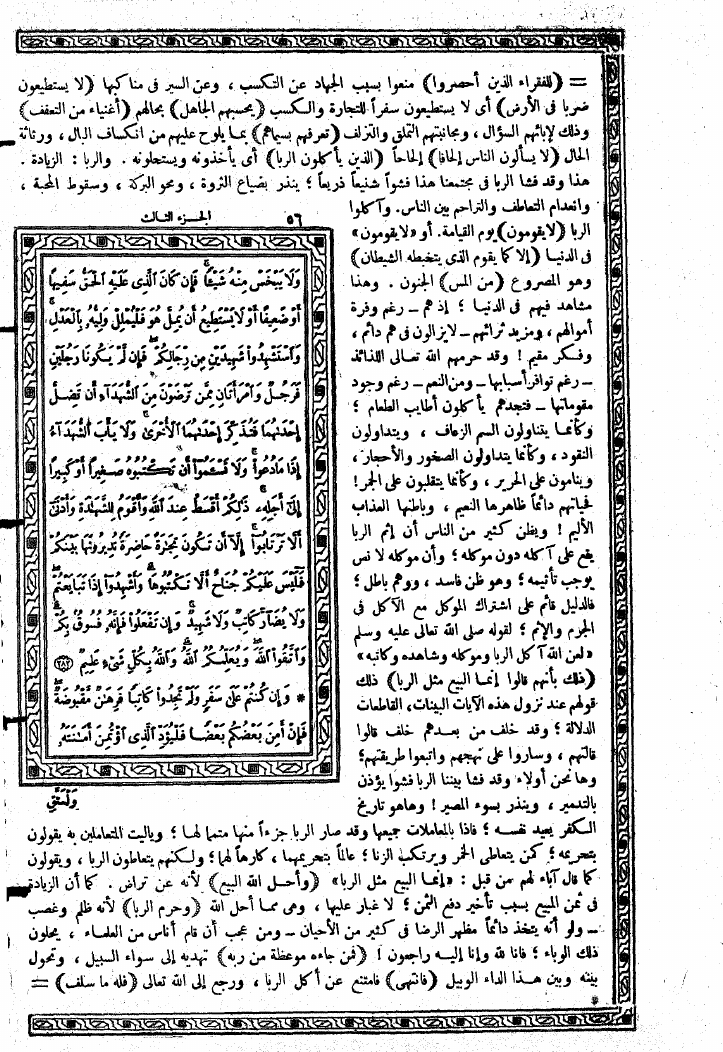 = (للفقراء الذين أحصروا) منعوا بسبب الجهاد عن التكسب ، وعن السير فى مناكبها (لا يستطيعون
ضربا فى الأرض) أى لا يستطيعون سفراً للتجارة والكسب (يحسبهم الجاهل) بحالهم (أغنياء من التعفف)
وذلك لإبائهم السؤال ، ومجانبتهم التملق والتزلف (تعرفهم بسيماهم) بما يلوح عليهم من انكساف البال ، ورثاثة
الحال (لا يسألون الناس إلحافا) إلحاحاً (الذين يأكلون الربا) أى يأخذونه ويستحلونه . والربا : الزيادة .
هذا وقد فشا الربا فى مجتمعنا هذا فشواً شنيعاً ذريعاً ؛ ينذر بضياع الثروة ، ومحو البركة ، وسقوط المحبة ،
وانعدام التعاطف والتراحم بين الناس. وآكلوا
الربا (لا يقومون) يوم القيامة. أو «لا يقومون»
فى الدنيا (إلا كما يقوم الذى يتخبطه الشيطان)
وهو المصروع (من المس) الجنون . وهذا
مشاهد فيهم فى الدنيا ؛ إذ هم ــ رغم وفرة
أموالهم ، ومزيد ثرائهم ــ لا يزالون فى هم دائم ،
وفكر مقيم ! وقد حرمهم الله تعالى اللذائذ
ــ رغم توافر أسبابها ــ ومن النعم ــ رغم وجود
مقوماتها ــ فتجدهم يأكلون أطايب الطعام ؛
وكأنما يتناولون السم الزعاف ، ويتداولون
النقود ، وكأنما يتداولون الصخور والأحجار،
وينامون على الحرير ، وكأنما يتقلبون على الجمر!
فحياتهم دائماً ظاهرها النعيم ، وباطنها العذاب
الأليم ! ويظن كثير من الناس أن إثم الربا
يقع على آكله دون موكله ؛ وأن موكله لا نص
يوجب تأثيمه ؛ وهو ظن فاسد ، ووهم باطل ؛
فالدليل قائم على اشتراك الموكل مع الآكل فى
الجرم والإثم ؛ لقوله صلى الله تعالى عليه وسلم
«لعن الله آكل الربا وموكله وشاهده وكاتبه»
(ذلك بأنهم قالوا إنما البيع مثل الربا) ذلك
قولهم عند نزول هذه الآيات البينات، القاطعات
الدلالة ؛ وقد خلف من بعدهم خلف قالوا
قالتهم ، وساروا على نهجهم واتبعوا طريقتهم؛
وها نحن أولاء وقد فشا بيننا الربا فشوا يؤذن
بالتدمير ، وينذر بسوء المصير ! وهاهو تاريخ
الجزء الثالث
٥٦
وَلَا يَبْخَسْ مِنْهُ شَيْئًا فَإِن كَانَ الَّذِى عَلَيْهِ الْحَقُّ سَفِيهًا
أَوْ ضَعِيفًا أَوْ لَا يَسْتَطِيعُ أَن يُمِلَّ هُوَ فَلْيُمْلِلْ وَلِيُّهُ بِالْعَدْلِ
وَاسْتَشْهِدُوا شَهِيدَيْنِ مِن رِّجَالِكُمْ فَإِن لَّمْ يَكُونَا رَجُلَيْنِ
فَرَجُلٌ وَامْرَأَتَانِ مِمَّن تَرْضَوْنَ مِنَ الشُّهَدَآءِ أَن تَضِلَّ
إِحْدَىٰهُمَا فَتُذَكِّرَ إِحْدَىٰهُمَا الْأُخْرَىٰ وَلَا يَأْبَ الشُّهَدَآءُ
إِذَا مَا دُعُوا وَلَا تَسْـَٔمُوٓا أَن تَكْتُبُوهُ صَغِيرًا أَوْ كَبِيرًا
إِلَىٰٓ أَجَلِهِۦ ذَٰلِكُمْ أَقْسَطُ عِندَ اللَّهِ وَأَقْوَمُ لِلشَّهَٰدَةِ وَأَدْنَىٰٓ
أَلَّا تَرْتَابُوٓا إِلَّآ أَن تَكُونَ تِجَٰرَةً حَاضِرَةً تُدِيرُونَهَا بَيْنَكُمْ
فَلَيْسَ عَلَيْكُمْ جُنَاحٌ أَلَّا تَكْتُبُوهَا وَأَشْهِدُوٓا إِذَا تَبَايَعْتُمْ
وَلَا يُضَآرَّ كَاتِبٌ وَلَا شَهِيدٌ وَإِن تَفْعَلُوا فَإِنَّهُۥ فُسُوقٌ بِكُمْ
وَاتَّقُوا اللَّهَ وَيُعَلِّمُكُمُ اللَّهُ وَاللَّهُ بِكُلِّ شَىْءٍ عَلِيمٌ ﴿٢٨٢﴾
* وَإِن كُنتُمْ عَلَىٰ سَفَرٍ وَلَمْ تَجِدُوا كَاتِبًا فَرِهَٰنٌ مَّقْبُوضَةٌ
فَإِنْ أَمِنَ بَعْضُكُم بَعْضًا فَلْيُؤَدِّ الَّذِى اؤْتُمِنَ أَمَٰنَتَهُۥ
وَلْيَتَّقِ
الكفر يعيد نفسه ؛ فاذا بالمعاملات جميعها وقد صار الربا جزءاً منها متمما لها ؛ وياليت المتعاملين به يقولون
بتحريمه ؛ كمن يتعاطى الخمر ويرتكب الزنا ؛ عالماً بتحريمهما ، كارهاً لهما ؛ ولكنهم يتعاطون الربا ، ويقولون
كما قال آباء لهم من قبل : «إنما البيع مثل الربا» (وأحل الله البيع) لأنه عن تراض . كما أن الزيادة
فى ثمن المبيع بسبب تأخير دفع الثمن ؛ لا غبار عليها ، وهى مما أحل الله (وحرم الربا) لأنه ظلم وغصب
ــ ولو أنه يتخذ دائماً مظهر الرضا فى كثير من الأحيان ــ ومن عجب أن قام أناس من العلماء ، يحلون
ذلك الوباء ؛ فانا لله وإنا إليه راجعون ! (فمن جاءه موعظة من ربه) تهديه إلى سواء السبيل ، وتحول
بينه وبين هذا الداء الوبيل (فانتهى) فامتنع عن أكل الربا ، ورجع إلى الله تعالى (فله ما سلف) =